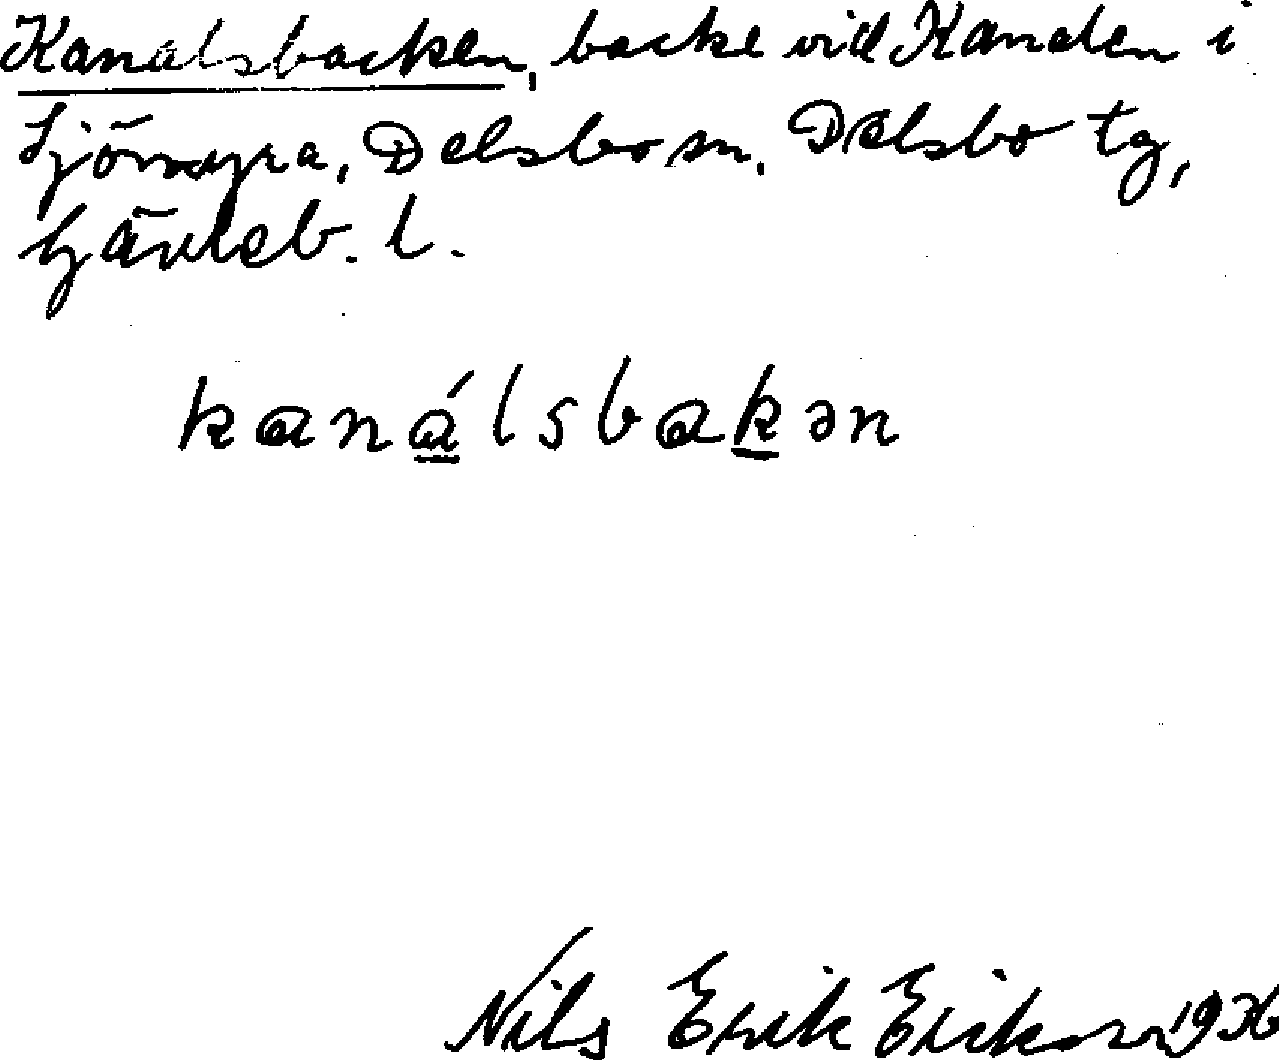 Kanalsbacken, backe vid Kanalen i
Sjömyra, Delsbo sn. Delsbo tg,
Gävleb. l.
kanálsbakən
Nils Erik Erikson 1936